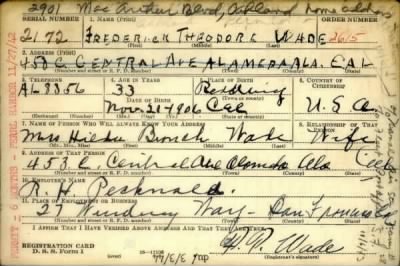 2901 Mac Arthur Blvd, Oakland home address
SERIAL NUMBER 1. NAME (Print) ORDER NUMBER
2172 FREDERICK THEODORE WADE 2615
(First) (Middle) (Last)
2. ADDRESS (Print)
453 C CENTRAL AVE ALAMEDA ALA. CAL
(Number and street or R. F. D. number) (Town) (County) (State)
3. TELEPHONE 4. AGE IN YEARS 5. PLACE OF BIRTH 6. COUNTRY OF CITIZENSHIP
AL 8356 33 Redding U.S.A.
DATE OF BIRTH (Town or county)
Nov. 21 1906 Cal
(Exchange) (Number) (Mo.) (Day) (Yr.) (State or country)
7. NAME OF PERSON WHO WILL ALWAYS KNOW YOUR ADDRESS 8. RELATIONSHIP OF THAT PERSON
Mrs Hilda Wade Wife
(Mr., Mrs., Miss) (First) (Middle) (Last)
9. ADDRESS OF THAT PERSON
453 Central Ave Alameda Ala Cal
(Number and street or R. F. D. number) (Town) (County) (State)
10. EMPLOYER'S NAME
R. H.
11. PLACE OF EMPLOYMENT OR BUSINESS
27 Way San Francisco
(Number and street or R. F. D. number) (Town) (County) (State)
I AFFIRM THAT I HAVE VERIFIED ABOVE ANSWERS AND THAT THEY ARE TRUE.
REGISTRATION CARD
D. S. S. Form 1
Wade
PERMIT - PEARL HARBOR 11/27/42